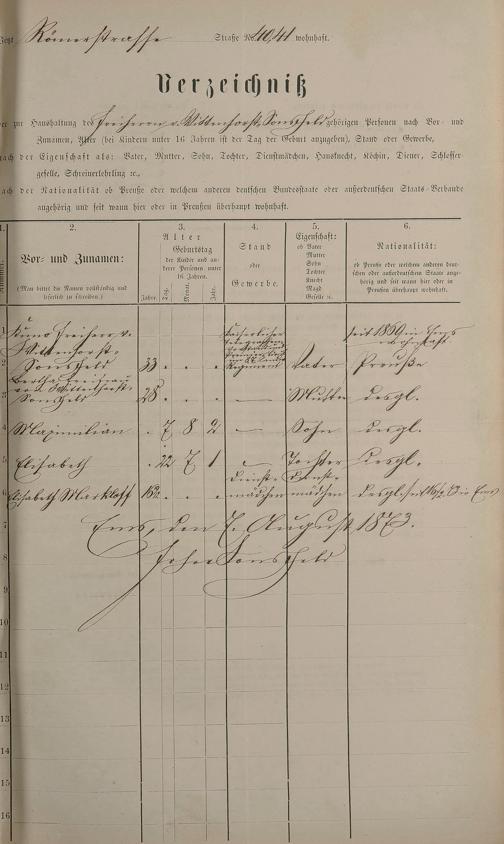 Jetzt Römerstrasse Straße No. 40/41 wohnhaft.
Verzeichniß
der zur Haushaltung des Freiherrn v. Wittenhorst-Sonsfeld gehörigen Personen nach Vor- und
Zunamen, Alter (bei Kindern unter 16 Jahren ist der Tag der Geburt anzugeben), Stand oder Gewerbe,
nach der Eigenschaft als: Vater, Mutter, Sohn, Tochter, Dienstmädchen, Hausknecht, Köchin, Diener, Schlosser-
geselle, Schreinerlehrling ꝛc.,
nach der Nationalität ob Preuße oder welchem anderen deutschen Bundesstaate oder außerdeutschen Staats-Verbande
angehörig und seit wann hier oder in Preußen überhaupt wohnhaft.
1. 2. 3. 4. 5. 6.
Nummer.
Vor- und Zunamen:
(Man bittet die Namen vollständig und
leserlich zu schreiben.)
Alter
Geburtstag
der Kinder und an-
derer Personen unter
16 Jahren.
Jahre. Tag. Monat. Jahr.
Stand
oder
Gewerbe.
Eigenschaft:
ob Vater
Mutter
Sohn
Tochter
Knecht
Magd
Geselle ꝛc.
Nationalität:
ob Preuße oder welchem anderen deut-
schen oder außerdeutschen Staate ange-
hörig und seit wann hier oder in
Preußen überhaupt wohnhaft.
1 Kuno Freiherr v.
Wittenhorst-
Sonsfeld 33 . . . Regiment Vater Preuße
Kaiserlicher
seit 1869 in Ems
wohnhaft
2
Bertha Freifrau
von Wittenhorst-
3 Sonsfeld 28 . . . — Mutter desgl.
4 Maximilian . 7 8 2 — Sohn desgl.
5 Elisabeth . 22 7 1 — Tochter desgl.
6 Elisabeth Markloff . . . Dienst-
mädchen Dienst-
mädchen desgl. in Ems
7 Ems, den 7. August 1873.
8 Sonsfeld
9
10
11
12
13
14
15
16